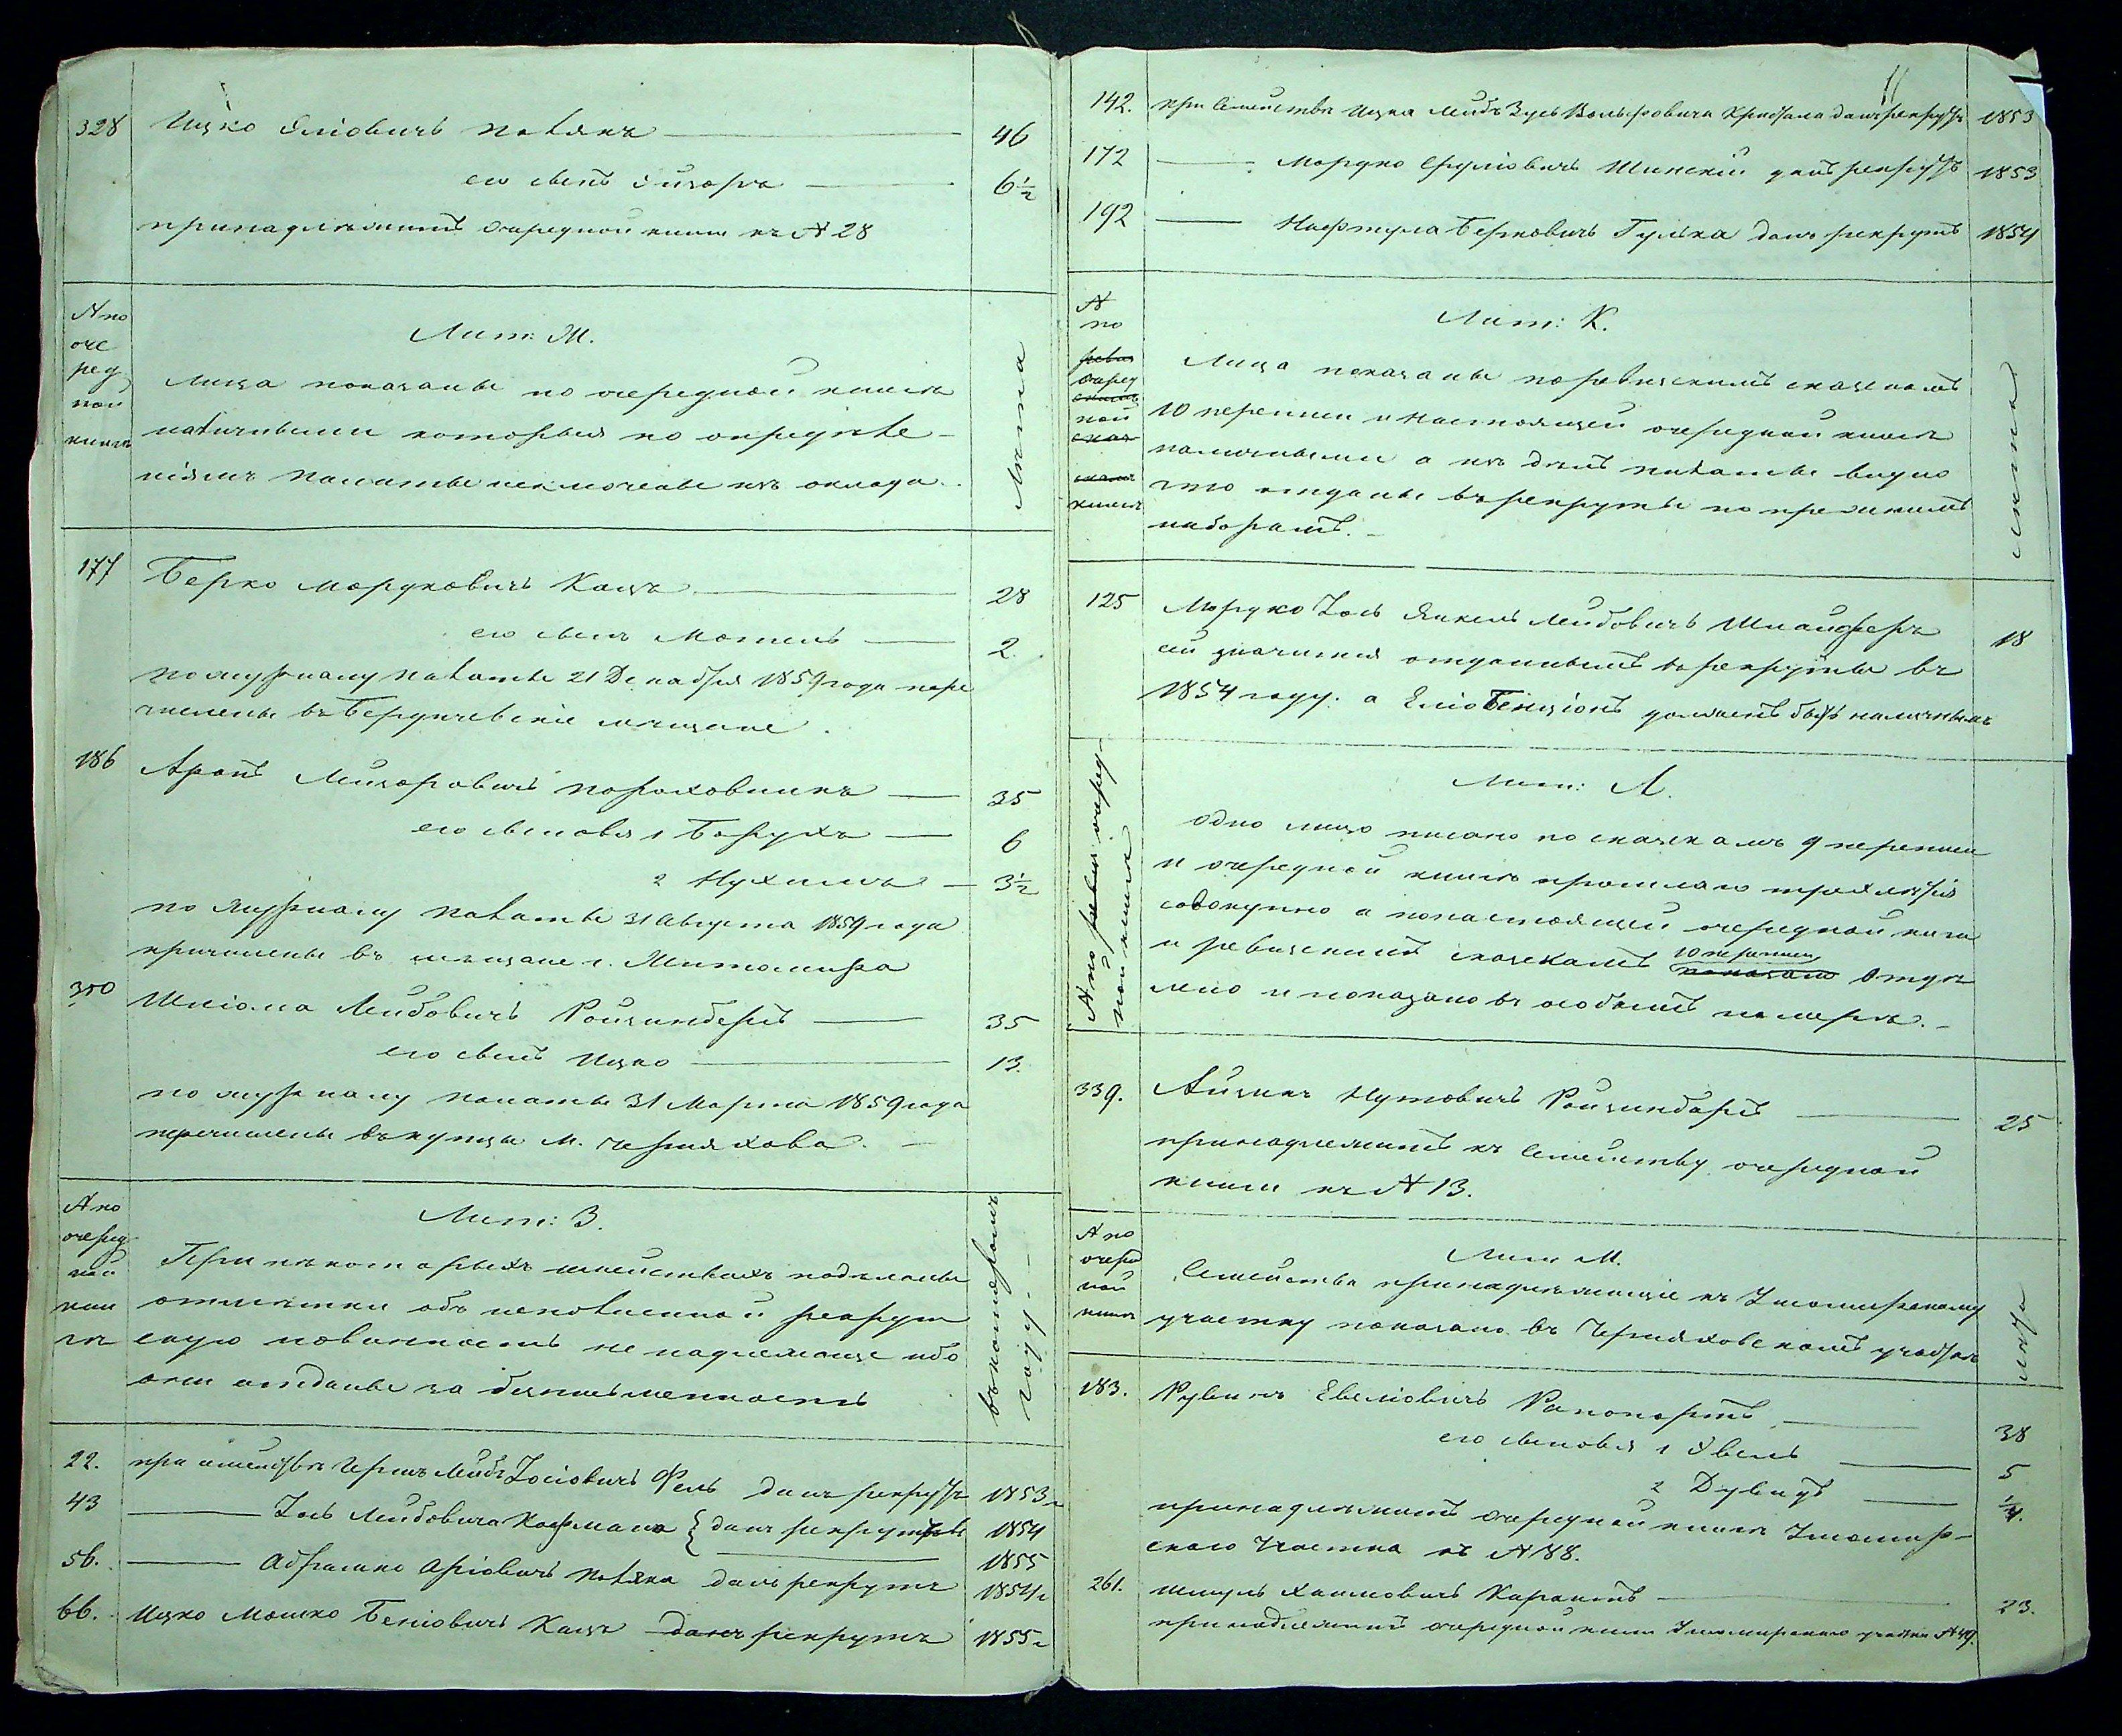 328 Ицко Эліовичъ Полякъ — 46
его сынъ Эйзеръ — 6½
принадлежитъ очередной книги къ № 28
№ по очередной книгѣ
Лит: Ж.
Лица показаны по очередной книгѣ
наличными которыя по опредѣле-
ніямъ Палаты исключены изъ оклада.
Лѣта
177 Берко Мордковичъ Кацъ — 28
его сынъ Мотель — 2
по журналу Палаты 21 Декабря 1859 года пере
числены въ Бердичевскіе мѣщане.
186 Аронъ Лейзеровичъ Пороховникъ — 35
его сыновья 1 Борухъ — 6
2 Нухимъ — 3½
по журналу Палаты 31 Августа 1859 года
причислены въ мѣщане г. Житомира
350 Шліома Лейбовичъ Ройзинбергъ — 35
его сынъ Ицко — 13.
по журналу Палаты 31 Марта 1859 года
перечислены въ купцы м. Черняхова. —
№ по очередной книгѣ
Лит: З.
При нѣкоторыхъ семействахъ подѣланы
отмѣтки объ исполненной рекрут
скую повинность не надлежаще ибо
они отданы за безписьменность
въ которомъ году. —
22. при семействѣ Лейбъ Іосіовичъ Фель данъ рекрутъ 1853 г
43 — Іось Лейбовича Кофмана { данъ рекрутъ 1854
— 1855
56. — Абрамко Аріовичъ Поляка данъ рекрутъ 1854 г
66. Ицко Мошко Беніовичъ Кацъ данъ рекрутъ 1855 г
11
142. при Семействѣ Ицка Лейбъ Зусь Вольфовича данъ рекрутъ 1853
172 — Мордко Сруліовичъ Шинскій данъ рекрутъ 1853
192 — Нафтула Берковичъ Гулька данъ рекрутъ 1854
№ по очередной книгѣ
Лит: К.
Лица показаны по ревизскимъ сказкамъ
10 переписи и настоящей очередной книгѣ
наличными а изъ дѣлъ палаты видно
что отданы въ рекруты по прежнимъ
наборамъ. —
Лѣта
125 Мордко Іось Янкель Лейбовичъ Шнайдеръ 18
сей значится отданнымъ въ рекруты въ
1854 году. а Еліо Бенціонъ долженъ быть наличнымъ
№ по очередной книгѣ
Лит: Л.
Одно лицо писано по сказкамъ 9 переписи
и очередной книгѣ прошлаго трехлѣтія
совокупно а по настоящей очередной книги
и ревизскимъ сказкамъ 10 переписи отдѣ
льно и показано въ особымъ номерѣ. —
339. Айзикъ Нутовичъ Ройзинбергъ — 25
принадлежитъ къ Семейству очередной
книги къ № 13.
№ по очередной книгѣ
Лит М.
Семейства принадлежащіе къ Житомирскому
участку показано въ Черняховскомъ участкѣ
Лѣта
183. Рувинъ Евеліовичъ Рапопортъ — 38
его сыновья 1 Эвель — 5
2 Дувидъ — ¼.
принадлежитъ очередной книгѣ Житомир-
скаго Участка къ № 88.
261. Шмуль Хаимовичъ Карантъ — 23.
принадлежитъ очередной книги Житомирскаго участка № 49.